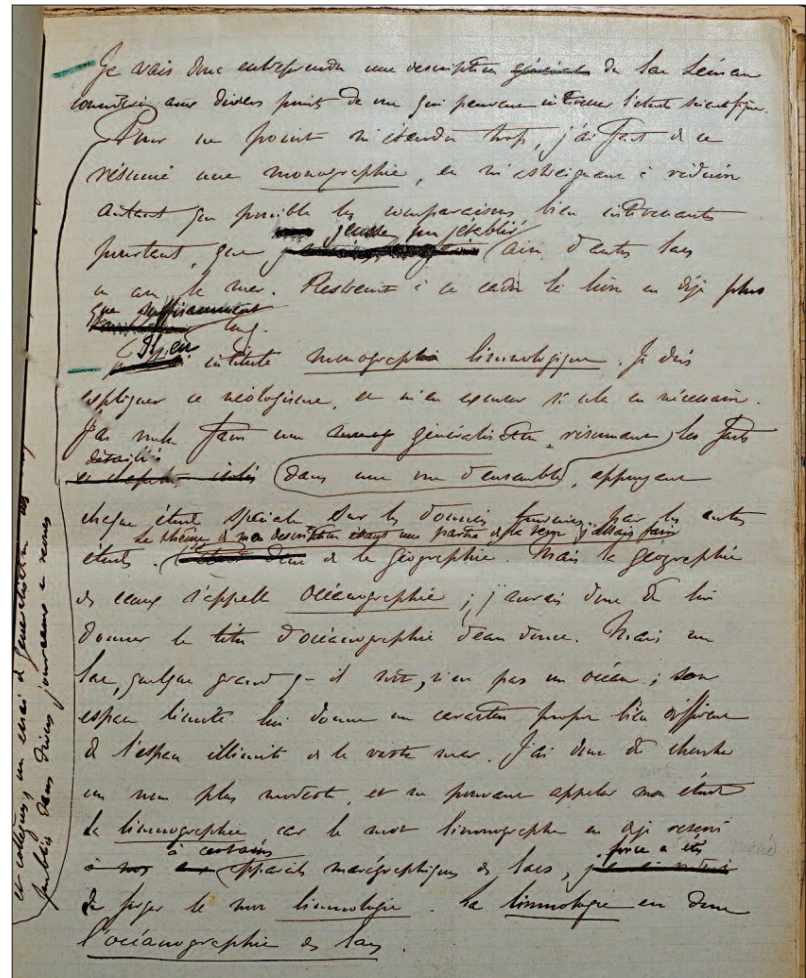 Je vais donc entreprendre une description générale du lac Léman
considéré aux divers points de vue qui peuvent intéresser l'étude scientifique.
Pour ne point m'étendre trop, j'ai fait de ce
résumé une monographie, en m'astreignant à réduire
autant que possible les comparaisons bien intéressantes
pourtant, que j'eusse pu établir avec d'autres lacs
ou avec la mer. Restreint à ce cadre le livre est déjà plus
que suffisamment long.
Il est intitulé monographie limnologique. Je dois
expliquer ce néologisme, et m'en excuser si cela est nécessaire.
J'ai voulu faire une généralisation, résumant les faits
détaillés
dans une vue d'ensemble, appuyant
chaque étude spéciale sur les données fournies par les autres
Le thème de ma description étant une partie de la terre j'allais faire
études. de la géographie. Mais la géographie
des eaux s'appelle océanographie ; j'aurais donc dû lui
donner le titre d'océanographie d'eau douce. Mais un
lac, quelque grand qu'il soit, n'est pas un océan ; son
espace limité lui donne un caractère propre bien différent
de l'espace illimité de la vaste mer. J'ai donc dû chercher
un nom plus modeste, et ne pouvant appeler mon étude
la limnographie, car le mot limnographe est déjà réservé
à certains appareils marégraphiques des lacs, force a été
de forger le mot limnologie. La limnologie est donc
l'océanographie des lacs.
un essai de généralisation
publiés dans divers journaux et revues